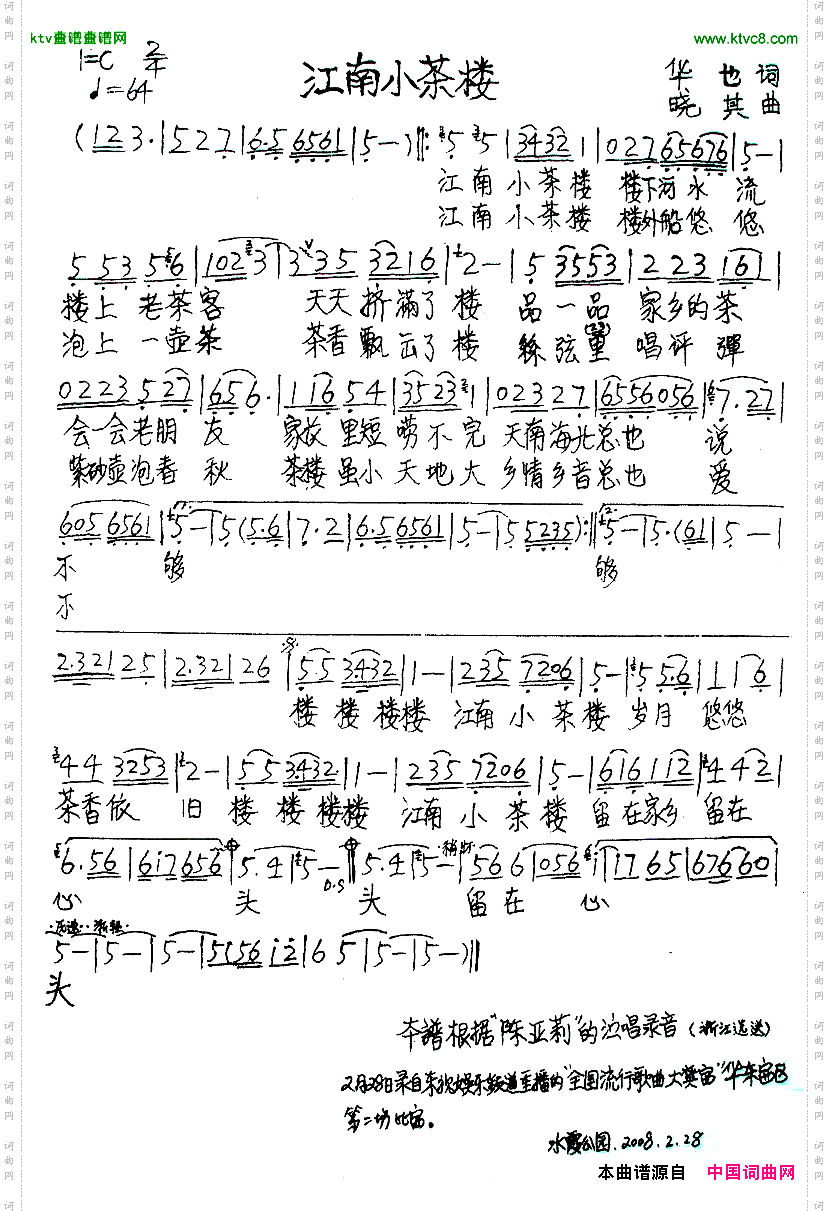 ktv歌谱歌谱网
www.ktvc8.com
1=C 2/4
♩=64
江南小茶楼
华也词
晓其曲
(1 2 3 · | 5 2 7 | 6·5 6561 | 5 — ) ‖: 5 5 | 3432 1 | 027 65676 | 5 — |
江南小茶楼 楼下河水流
江南小茶楼 楼外船悠悠
5 53 5 6 | 1023 | 3 35 3216 | 2 — | 5 3553 | 2 23 161 |
楼上老茶客 天天挤满了楼 品一品家乡的茶
泡上一壶茶 茶香飘云了楼 丝弦里唱评弹
0223 527 | 656· | 1 16 54 | 3523 1 | 0232 7 | 6556056 | 7·27 |
会一会老朋友 家故里短唠不完 天南海北总也说
紫砂壶泡春秋 茶楼虽小天地大 乡情乡音总也爱
605 6561 | 5 — | 5 (5·6 | 7·2 | 6·5 6561 | 5 — | 5 5235) :‖ 5 — | 5·(61 | 5 — |
不够 够
不
2·321 25 | 2·321 26 | 55 3432 | 1 — | 235 7206 | 5 — | 5 5·6 | 1 16 |
楼楼楼楼 江南小茶楼 岁月悠悠
44 3253 | 2 — | 55 3·432 | 1 — | 235 7206 | 5 — | 616 112 | 4 42 |
茶香依旧 楼楼楼楼 江南小茶楼 留在家乡 留在
6·56 | 6i7 656 | 5·4 | 5 — | 5·4 | 5 — | 56 6 | 056 | i i7 65 | 67660 |
D.S
心头 头 留在心
5 — | 5 — | 5 — | 5(56 i2 | 6 5 | 5 — | 5 — ) ‖
头
本谱根据"陈亚莉"的演唱录音(浙江选送)
2月28日录自东方娱乐频道直播的"全国流行歌曲大奖赛"华东赛区
第二场比赛。
水霞公园.2008.2.28
本曲谱源自 中国词曲网
词曲网